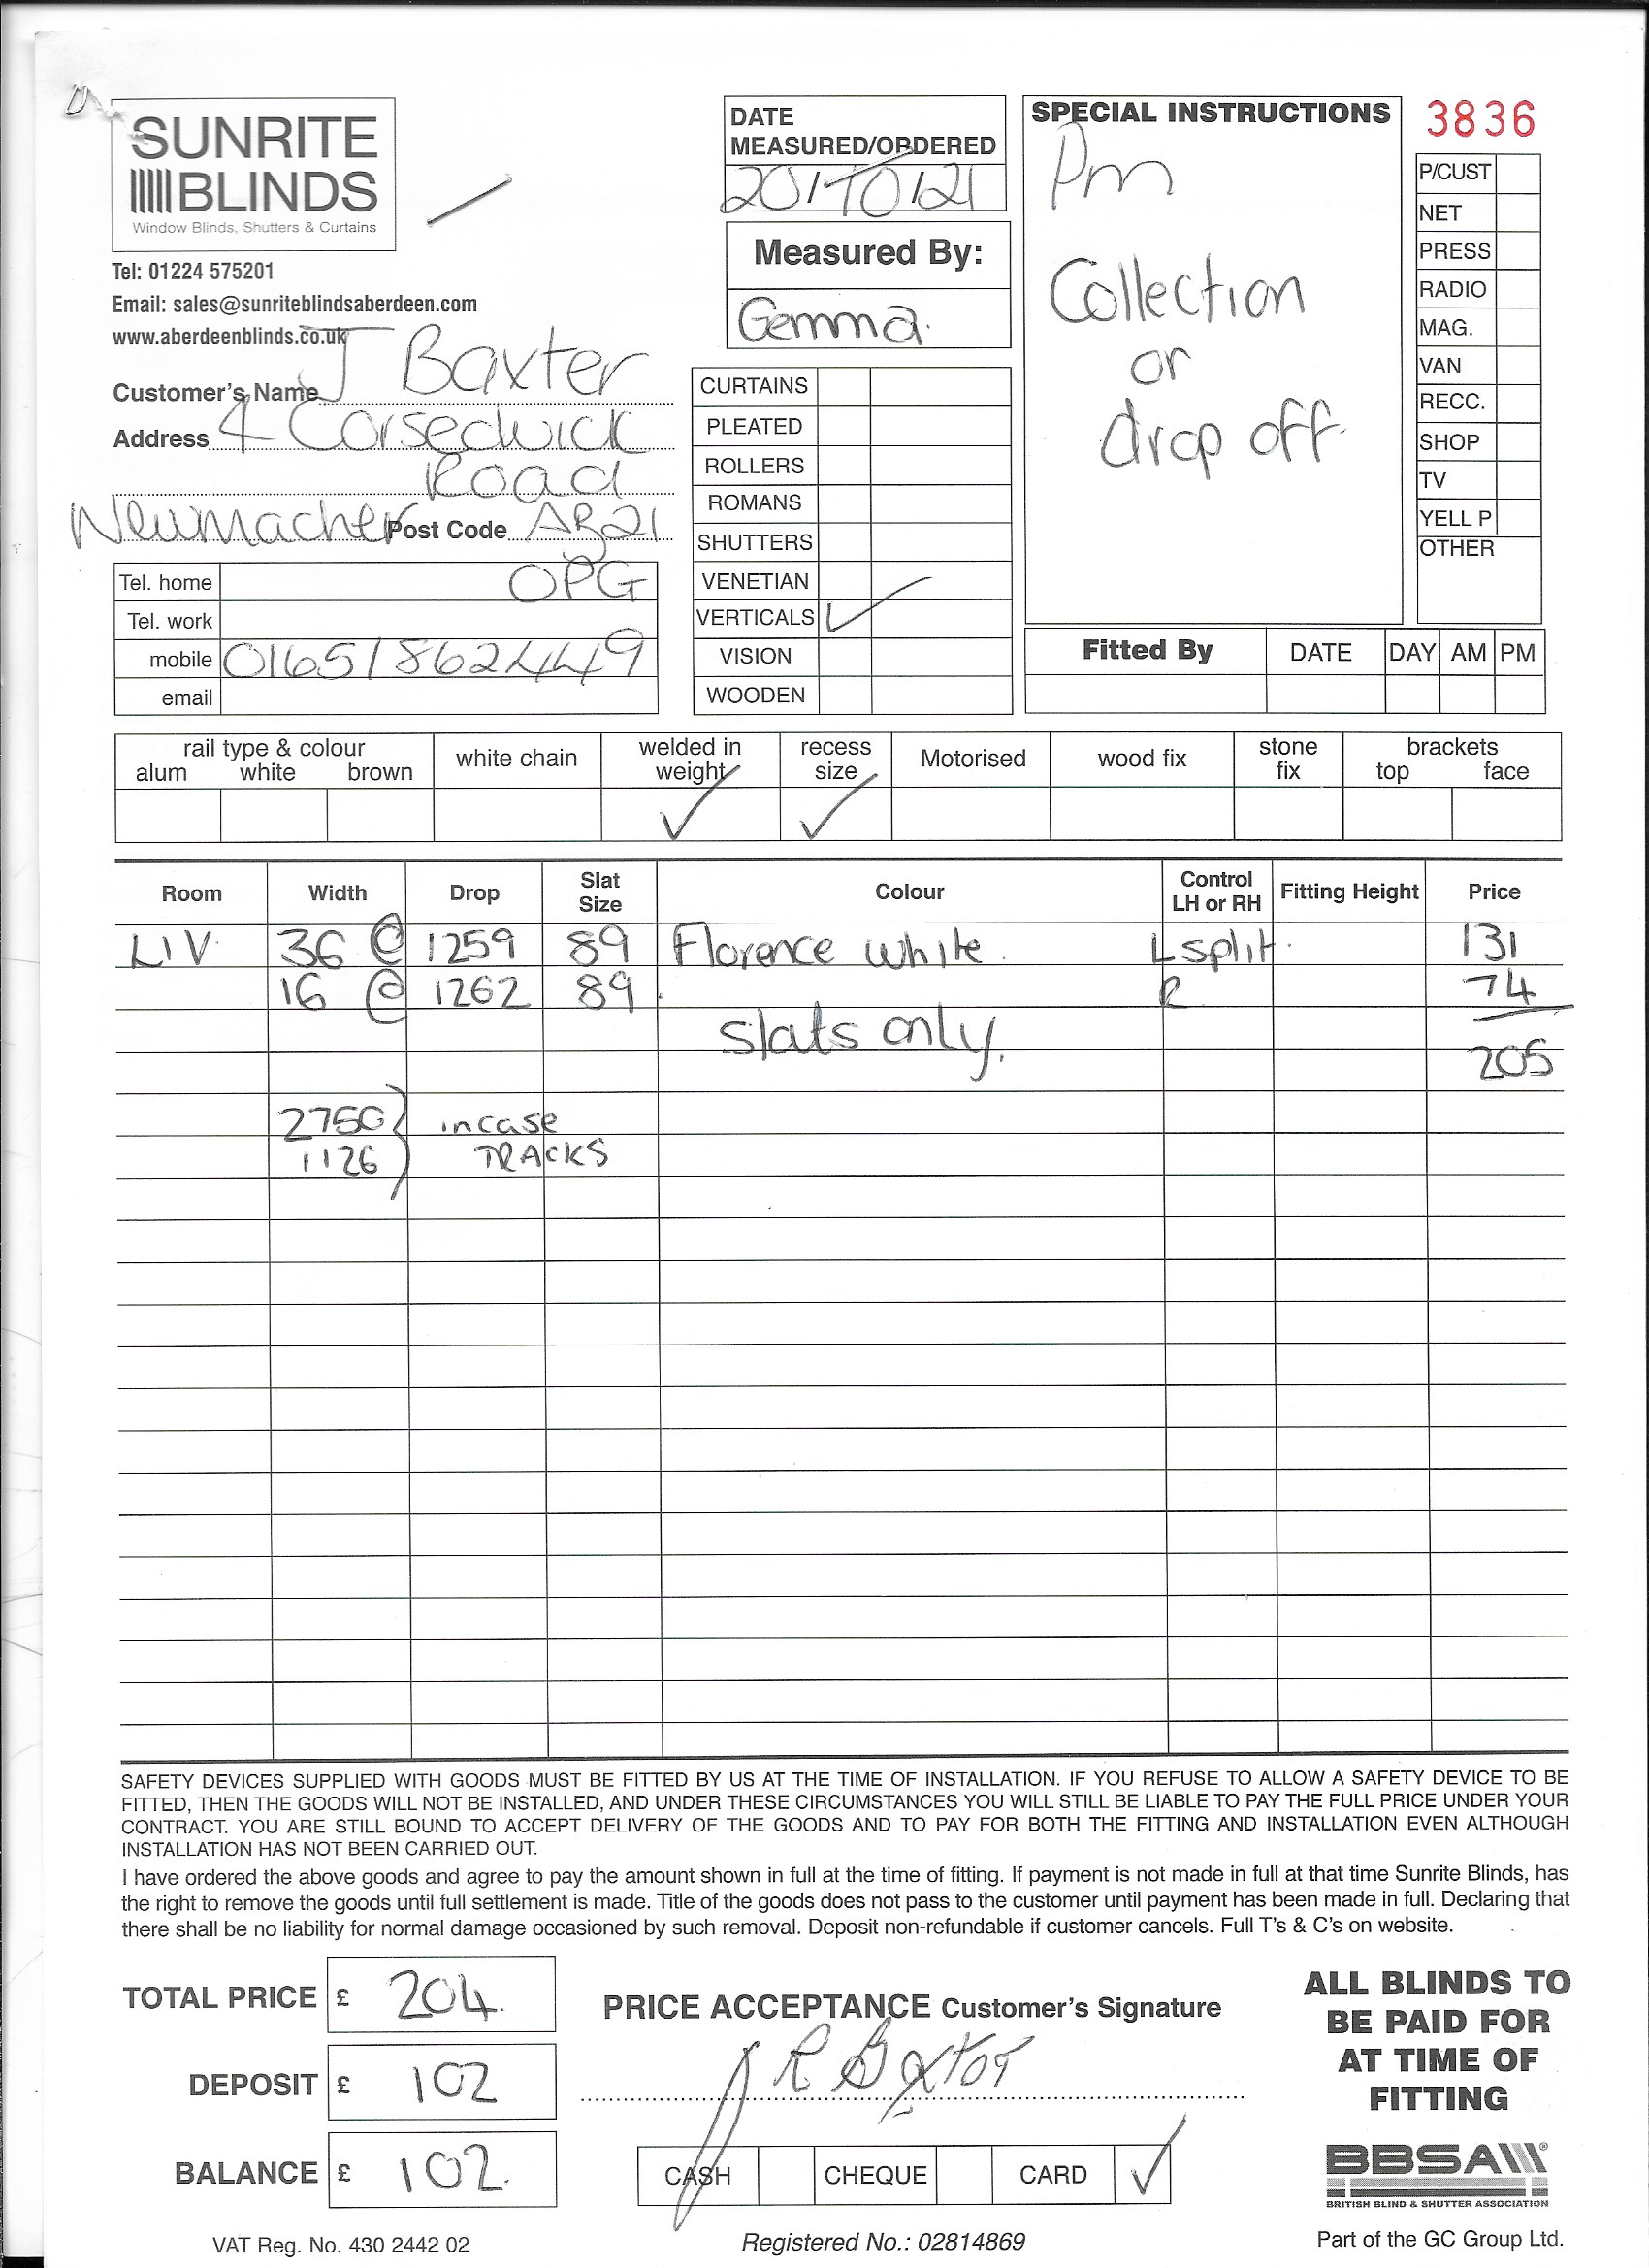 SUNRITE
BLINDS
Window Blinds, Shutters & Curtains
Tel: 01224 575201
Email: sales@sunriteblindsaberdeen.com
www.aberdeenblinds.co.uk
Customer's Name J Baxter
Address 4 Corsedwick
Road
Newmacher Post Code AB21
OPG
Tel. home
Tel. work
mobile 01651862449
email
DATE
MEASURED/ORDERED
20/10/21
Measured By:
Gemma.
CURTAINS
PLEATED
ROLLERS
ROMANS
SHUTTERS
VENETIAN
VERTICALS ✓
VISION
WOODEN
SPECIAL INSTRUCTIONS
Pm
Collection
or
drop off.
3836
P/CUST
NET
PRESS
RADIO
MAG.
VAN
RECC.
SHOP
TV
YELL P
OTHER
Fitted By DATE DAY AM PM
rail type & colour white chain welded in weight ✓ recess size ✓ Motorised wood fix stone fix brackets
alum white brown top face
Room Width Drop Slat Size Colour Control LH or RH Fitting Height Price
LIV 36 @ 1259 89 Florence White. L split. 131
16 @ 1262 89 R 74
slats only. 205
2750 } incase
1126 TRACKS
SAFETY DEVICES SUPPLIED WITH GOODS MUST BE FITTED BY US AT THE TIME OF INSTALLATION. IF YOU REFUSE TO ALLOW A SAFETY DEVICE TO BE
FITTED, THEN THE GOODS WILL NOT BE INSTALLED, AND UNDER THESE CIRCUMSTANCES YOU WILL STILL BE LIABLE TO PAY THE FULL PRICE UNDER YOUR
CONTRACT. YOU ARE STILL BOUND TO ACCEPT DELIVERY OF THE GOODS AND TO PAY FOR BOTH THE FITTING AND INSTALLATION EVEN ALTHOUGH
INSTALLATION HAS NOT BEEN CARRIED OUT.
I have ordered the above goods and agree to pay the amount shown in full at the time of fitting. If payment is not made in full at that time Sunrite Blinds, has
the right to remove the goods until full settlement is made. Title of the goods does not pass to the customer until payment has been made in full. Declaring that
there shall be no liability for normal damage occasioned by such removal. Deposit non-refundable if customer cancels. Full T's & C's on website.
TOTAL PRICE £ 204.
DEPOSIT £ 102
BALANCE £ 102.
PRICE ACCEPTANCE Customer's Signature
J R Baxter
CASH CHEQUE CARD ✓
ALL BLINDS TO
BE PAID FOR
AT TIME OF
FITTING
BBSA
BRITISH BLIND & SHUTTER ASSOCIATION
VAT Reg. No. 430 2442 02
Registered No.: 02814869
Part of the GC Group Ltd.